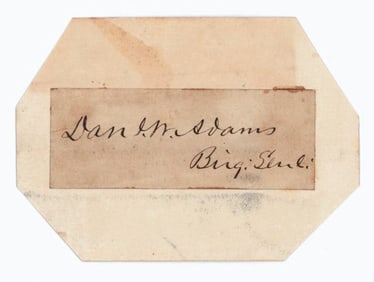 Danl. W. Adams
Brig: Genl: